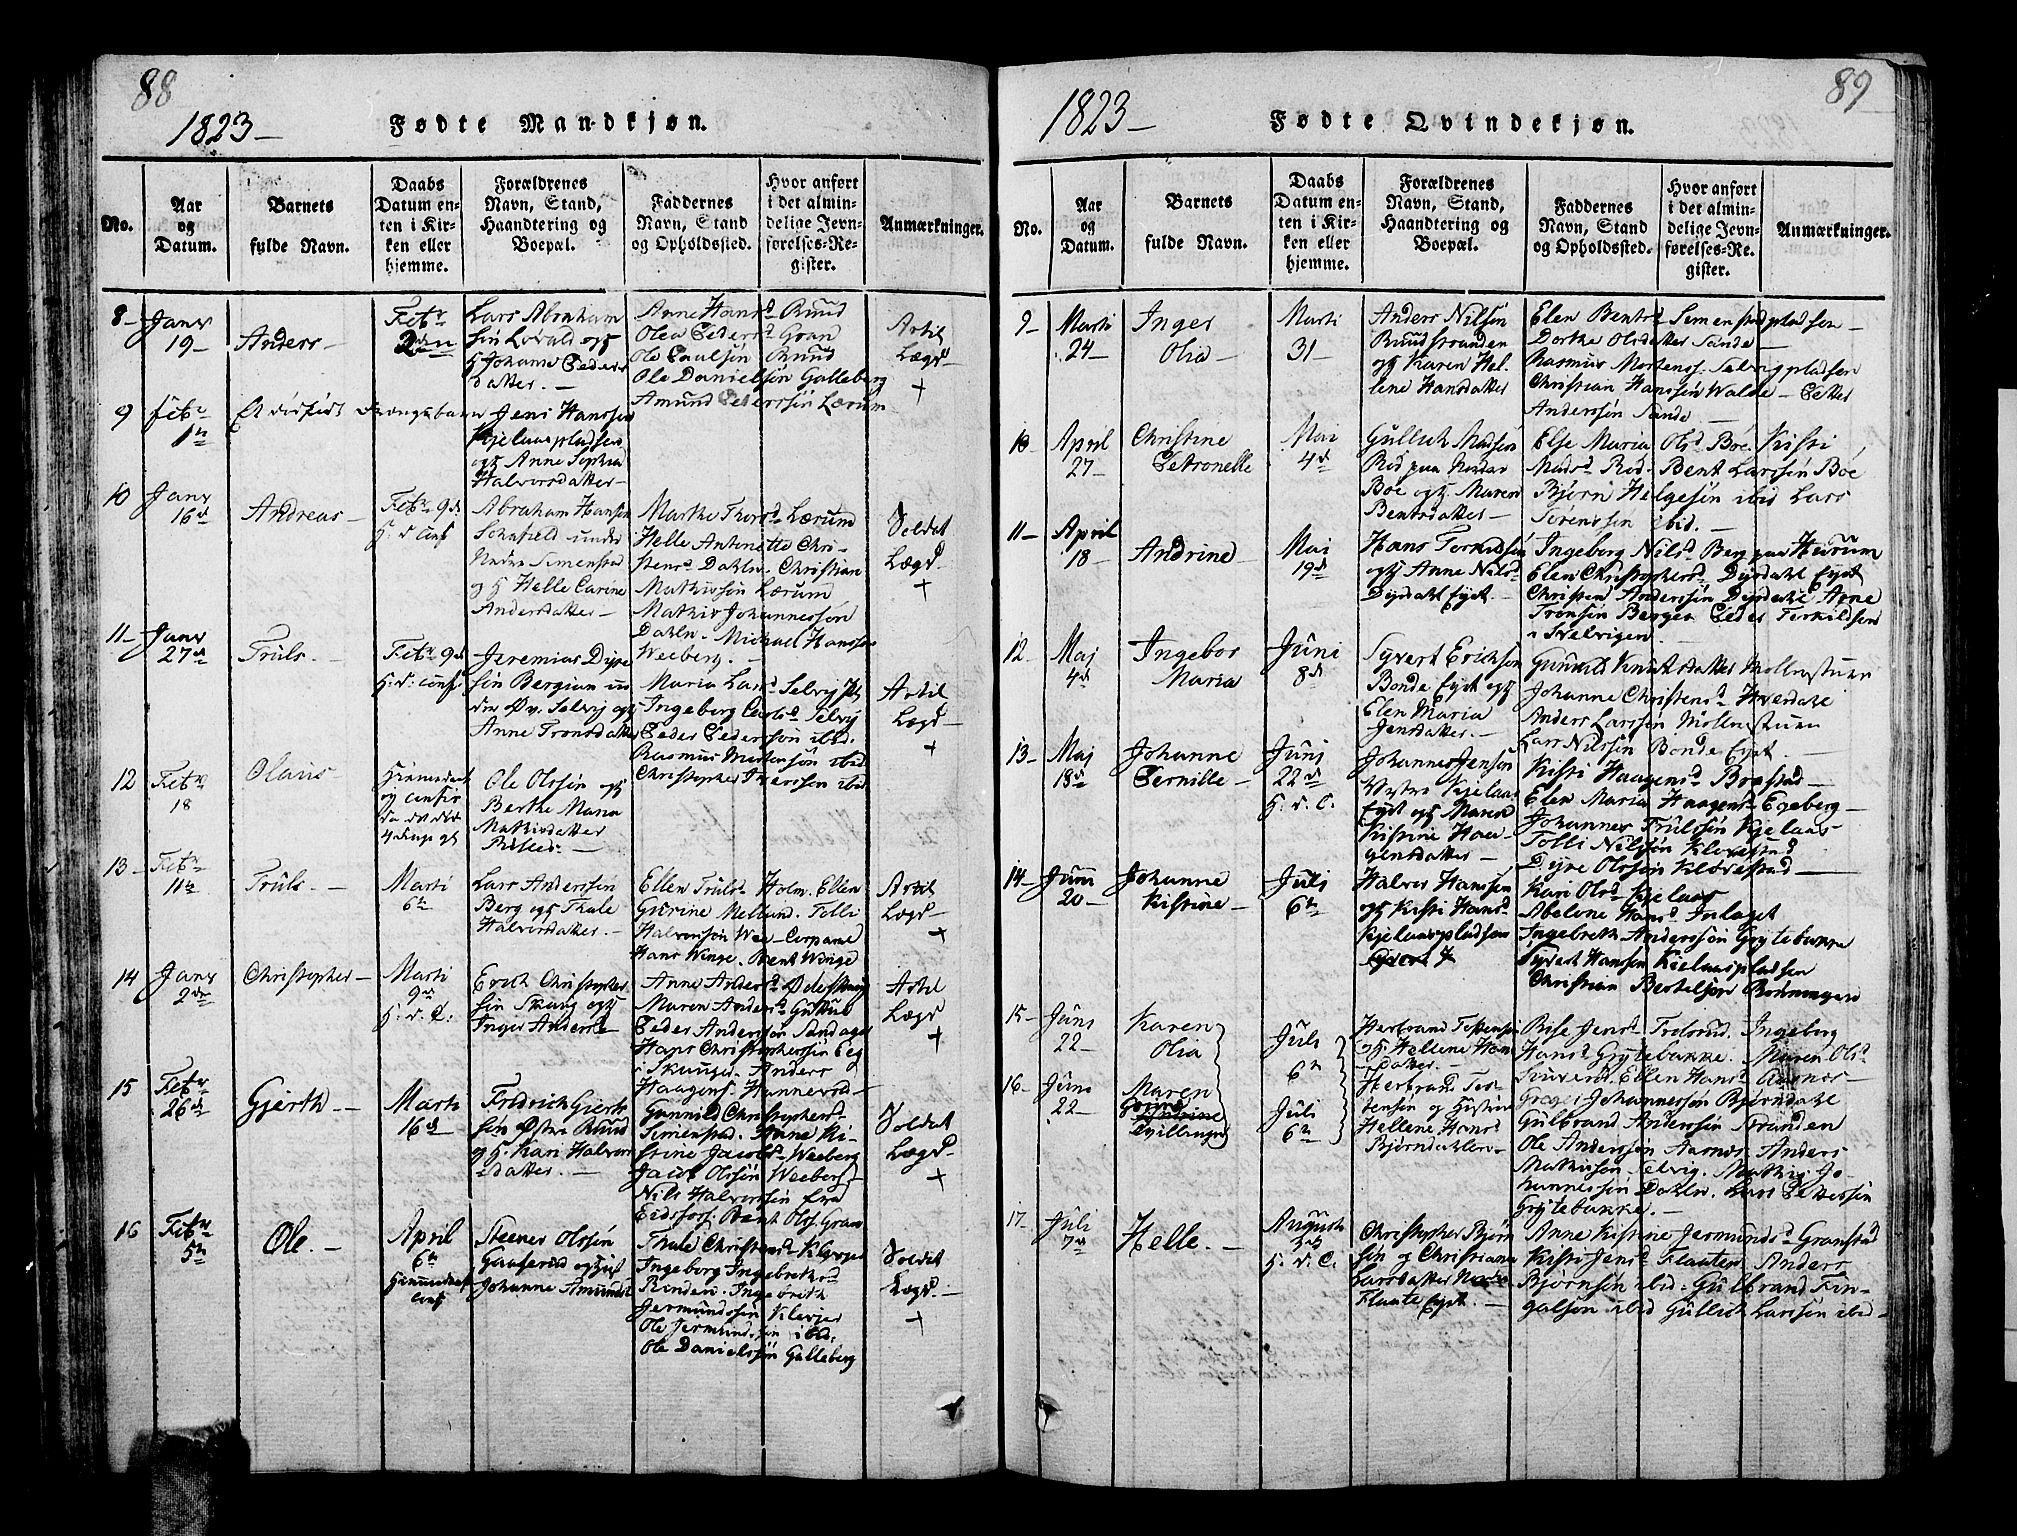 88
1823 –
Fødte Mandkjøn.
No.
Aar
og
Datum.
Barnets
fulde Navn.
Daabs
Datum en-
ten i Kir-
ken eller
hjemme.
Forældrenes
Navn, Stand,
Haandtering og
Boepæl.
Faddernes
Navn, Stand
og Opholdssted.
Hvor anført
i det almin-
delige Jevn-
førelses-Re-
gister.
Anmærkninger.
8 –
Janr
19 –
Anders –
Febr
2den
Lars Abraham
søn Løvald og
H Johanne Peders
datter. –
Anne Hansd Ruud
Olea Pedersd Gran
Ole Paulsøn Ruud
Ole Danielsøn Galleberg
Amund Pederssøn Lærum
Artil
Lægd –
+
9
Febr
1n
Et dødfødt Drengebarn
Jens Hanssen
Kjelaaspladsen
og Anne Sophia
Halvorsdatter –
10
Janr
16d
Andreas –
Febr 9d
H. d. conf
Abraham Hansen
under
Nedre Simenstad
og H Helle Carine
Andersdatter –
Marthe Thorsd Lærum
Helle Antonette Chri-
stensd Dahln. Christian
Mathissøn Lærum
Mathis Johannessøn
Dahln. Michael Hanssen
Weeberg. –
Soldat
Lægd –
+
11 –
Janr
27d
Truls. –
Febr 9d
H: d: conf.
Jeremias Dyre
søn Bergian un
der Øv. Selvig og
Anne Tronsdatter
Maria Larsd Selvig
Ingeborg Carlsd Selvig
Peder Pederssøn ibid.
Rasmus Mortensøn ibid
Christopher Iverssøn ibid
Artil
Lægd –
+
12
Febr
18
Olaus –
Hiemmedøbt
og
Ole Olssøn og
Berthe Maria
Mathisdatter
13 –
Febr
11te
Truls. –
Marti
6te
Lars Anderssøn
Berg og Thale
Halvorsdatter. –
Ellen Trulsd Holm. Ellen
Gurine Mellund. Tolle
Halvorssøn Wee – Corporal
Hans Winge. Bent Winge
Artil
Lægd –
+
14
Janr
2den
Christopher –
Marti
9d
H. d. C.
Erich Christopher
søn Skaug og
Inger Andersd –
Anne Andersd
Maren Andersd
Peder Anderssøn
Hans Christopherssøn Eeg
i Skauger. Anders
Haagens. Hannevold –
Artil
Lægd
+
15
Febr
26de
Gjerth –
Marti
16d
Fredrich Gierts
søn Østre Ruud
og H. Kari Halvors
datter. –
Gunnild Christophersd
Simenstad. Anne Ki-
stine Jacobsd Weeberg
Jacob Olssøn Weeberg
Nils Halvorssøn fra
Eidsfoss. Bent Olss. Gran
Soldat
Lægd –
+
16
Febr
5te
Ole. –
April
6te
Hiemmedøbt
conf
Steener Olssøn
og
Johanne Amundsd
Thale Christensd Klevjer
Ingeborg Ingebrethsd
Rinden. Ingebreth
Jermundssøn Klevjer
Ole Jermundssøn ibid.
Ole Danielssøn Galleberg
Soldat
Lægd –
+
89
1823 –
Fødte Qvindekjøn.
No.
Aar
og
Datum.
Barnets
fulde Navn.
Daabs
Datum en-
ten i Kir-
ken eller
hjemme.
Forældrenes
Navn, Stand,
Haandtering og
Boepæl.
Faddernes
Navn, Stand
og Opholdssted.
Hvor anført
i det almin-
delige Jevn-
førelses-Re-
gister.
Anmærkninger.
9 –
Marti
24 –
Inger
Olia –
Marti
31 –
Anders Nilsøn
Ruudstranden
og Karen Hel-
lene Hansdatter
Elen Bentsd Simenstadpladsen –
Dorthe Olsdatter Sande –
Rasmus Mortens. Selvigpladsen
Christian Hanssøn Walde – Petter
Anderssøn Sande –
10 –
April
27 –
Christine
Petronelle
Mai
4d
Gullich Madsen
Rød paa Nordre
Bøe og Maren
Bentsdatter –
Else Maria Olsd Bøe. Kisti
Madsd Rød. Bent Larssøn Bøe
Bjørn Helgesøn ibid Lars
Sørenssøn ibid. –
11 –
April
18 –
Andrine –
Mai
19d
Hans Terkildsøn
og Anne Nilsd
Dysdahl Eyet –
Ingeborg Nilsd Berg paa Hærum
Elen Christophersd Dysdahl Eyet
Christen Anderssøn Dysdahl Arne
Tronsøn Bergan Peder Terkildsøn
i Svelvigen –
12 –
Maj
4d
Ingebor
Maria
Juni
8d
Syvert Erichsøn
Bonde Eyet og
Elen Maria
Jensdatter. –
Gunild Knutsdatter Mollerstuen
Johanne Christensd Hvesdahl
Anders Larssøn Mollerstuen
Lars Nilssøn Bonde Eyet –
13 –
Maj
18d
Johanne
Pernille –
Juni
22d
H. d. C.
Johannes Jensøn
Østre Kjelaas
Eyet og Maria
Kistine Haa-
gensdatter –
Kisti Haagensd Brestad –
Elen Maria Haagensd Egeberg –
Johannes Trulssøn Kjelaas
Tolli Nilssøn Klovestad
Dyre Olssøn Klovestad –
14 –
Juni
20 –
Johanne
Kistine –
Juli
6te
Halvor Hanssøn
og Kisti Hansd
Kjelaaspladsen
Kari Olsd Kjelaas
Abelene Hansd Inlaget
Ingebreth Anderssøn Grytebakke
Syvert Hansen Kjelaaspladsen
Christian Bertelssøn
15 –
Juni
22 –
Karen
Olia
Juli
6te
Herbrand Tostensøn
og Hellene Hans
datter. –
Rise Jensd Ingeborg
Hansd Grytebakke. Maren Olsd
Ellen Hansd Aarnes –
16 –
Juni
22 –
Maren
Tvillinger
Juli
6te
Herbrand Tos-
tensøn og Hustru
Hellene Hansd
Bjørndahlen –
Johannessøn Bjørndahl
Gulbrand Anderssøn Stranden
Ole Anderssøn Aarnes. Anders
Mathissøn Selvig. Mathis Jo-
hannessøn Dahln. Lars Pettersøn
Grytebakke. –
17 –
Juli
7d
Helle. –
Augusti
H. d. C.
Christopher Bjørn
søn og Christiane
Larsdatter Nedre
Flaate Eyet. –
Anne Kistine Jermundsd Granstad
Kisti Jensd Flaaten Anders
Bjørnsøn ibid. Gulbrand Fin-
galsøn ibid Gullich Larsøn ibid –